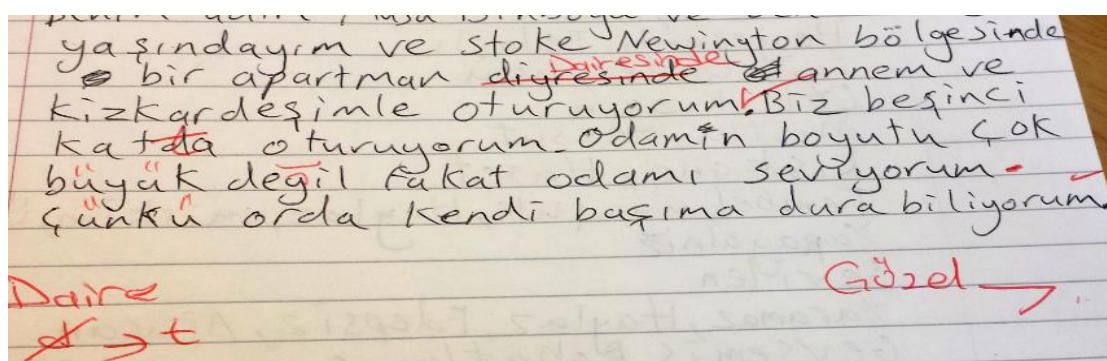 yaşındayım ve Stoke Newington bölgesinde
Dairesinde
bir apartman diyresinde annem ve
kizkardeşimle oturuyorum. Biz beşinci
katda oturuyorum. Odamin boyutu çok
büyük değil fakat odamı seviyorum
çünkü orda kendi başıma dura biliyorum.
Daire
Güzel
d → t